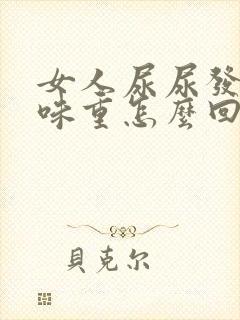 女人尿尿發
味重怎麼回
貝克尔